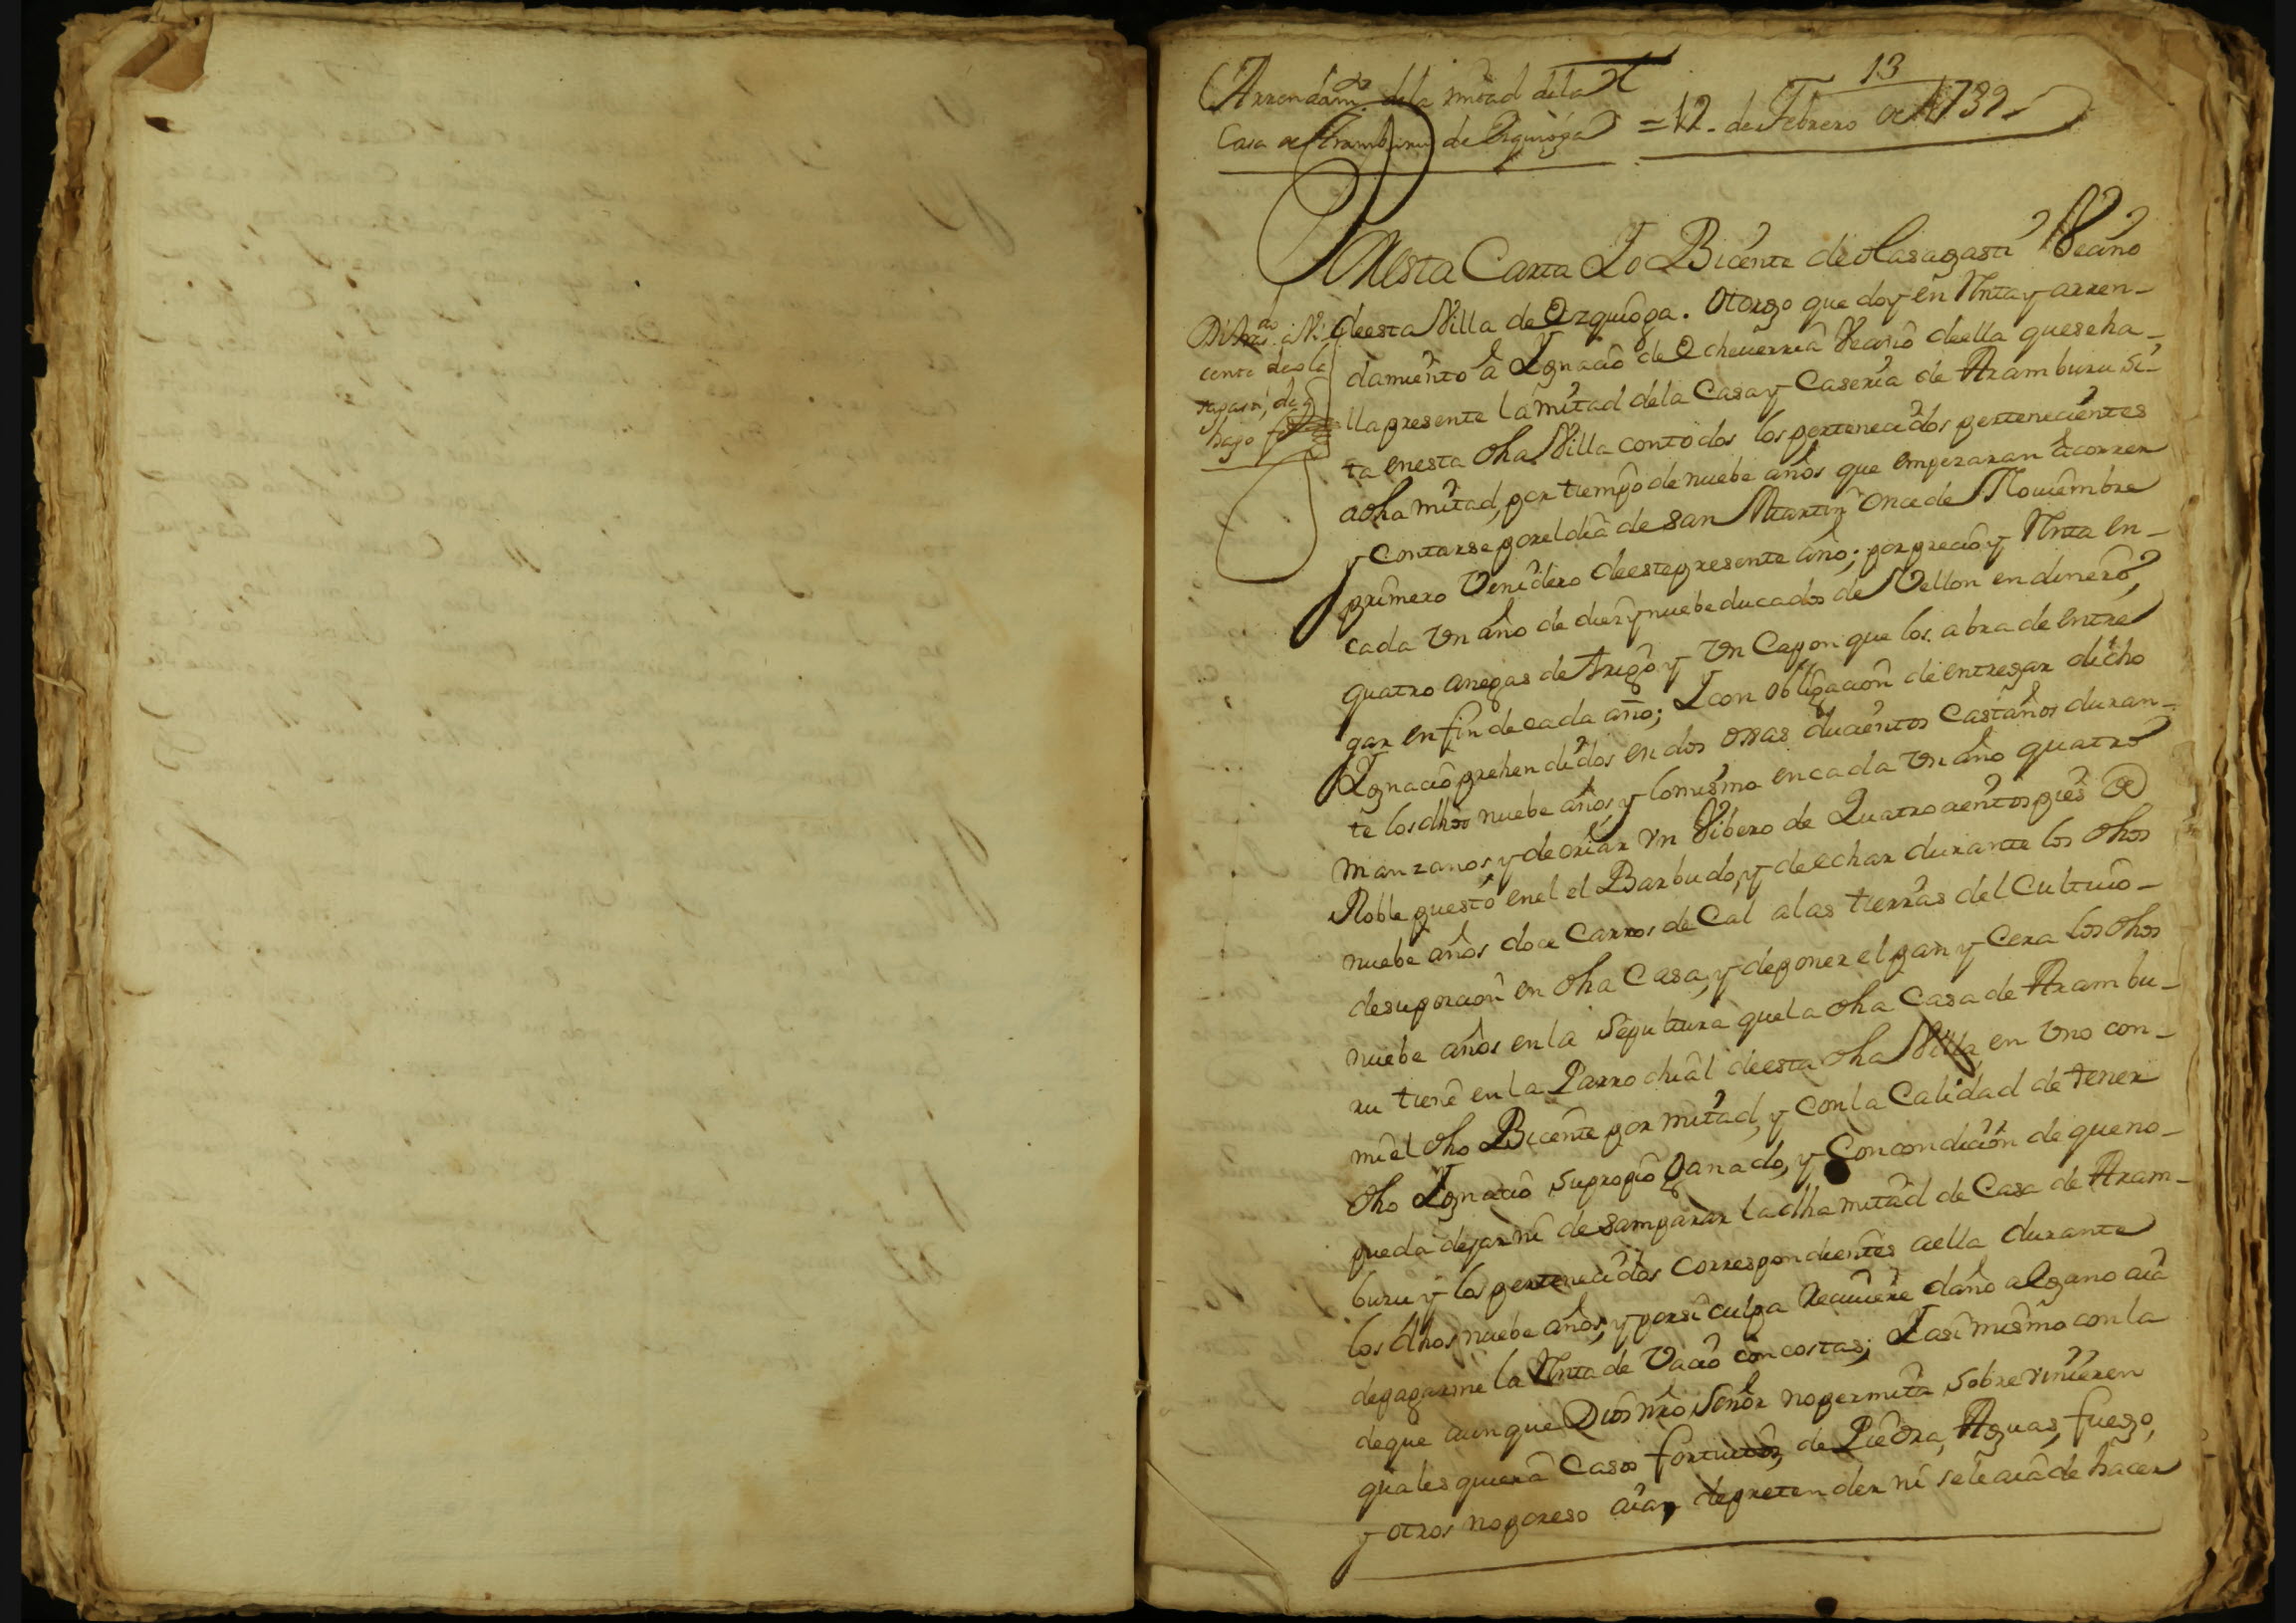 13
Arrendam.to dela mitad dela
Casa de Aramburu de Ezquioga = 12 de Febrero de 1732
En esta Carta Yo Bicente de Olasagasti Vecino
deesta Villa de Ezquioga. Otorgo que doy en Renta y arren-
damiento â Ignacio de Echeuerria Vecino deella queseha-
lla presente la mitad dela Casa y Caseria de Aramburu si-
ta enesta dha Villa contodos los pertenecidos pertenecientes
adha mitad, por tiempo de nuebe años que empezaran â correr
y Contarse por el dia de San Martin Once de Nouiembre
primero Venidero deeste presente año; por precio y Renta en-
cada Vn año de diez y nuebe ducados de Vellon en dinero,
quatro anegas de trigo y Vn Capon que los abra de entre
gar en fin de cada año; Y con obligacion de entregar dicho
Ignacio prehendidos en dos oxas ducientos Castaños duran-
te los dhos nuebe años, y lo mismo en cada Vn año quatro
manzanos, y de criar Vn Vibero de Quatrocientos pies de
Roble puesto enel el Barbudo, y de echar durante los dhos
nuebe años doce Carros de Cal a las tierras del Cultiuio-
desuporcion en dha Casa, y de poner el pan y Cera los dhos
nuebe años en la Sepultura quela dha Casa de Arambu-
ru tiene en la Parrochial deesta dha Villa, en Vno con-
mi el dho Bicente por mitad, y con la Calidad de tener
dho Ignacio supropio Ganado, y Con condicion de queno-
pueda dejar ni desamparar la dha mitad de Casa de Aram-
buru y los pertenecidos Correspondientes aella durante
los dhos nuebe años, y por si culpa Recuuiere daño alguno aia
depagarme la Renta de Vacio con costas; Y asi mismo con la
deque aunque Dios nro Señor nopermita Sobreuinieren
quales quiera Casos fortuitos, de Piedra, Aguas, fuego,
y otros noporeso aia, depretender ni seleaiade hacer
Di tras.do â Vi
cente de Ola
sagasti, de q
hago fee